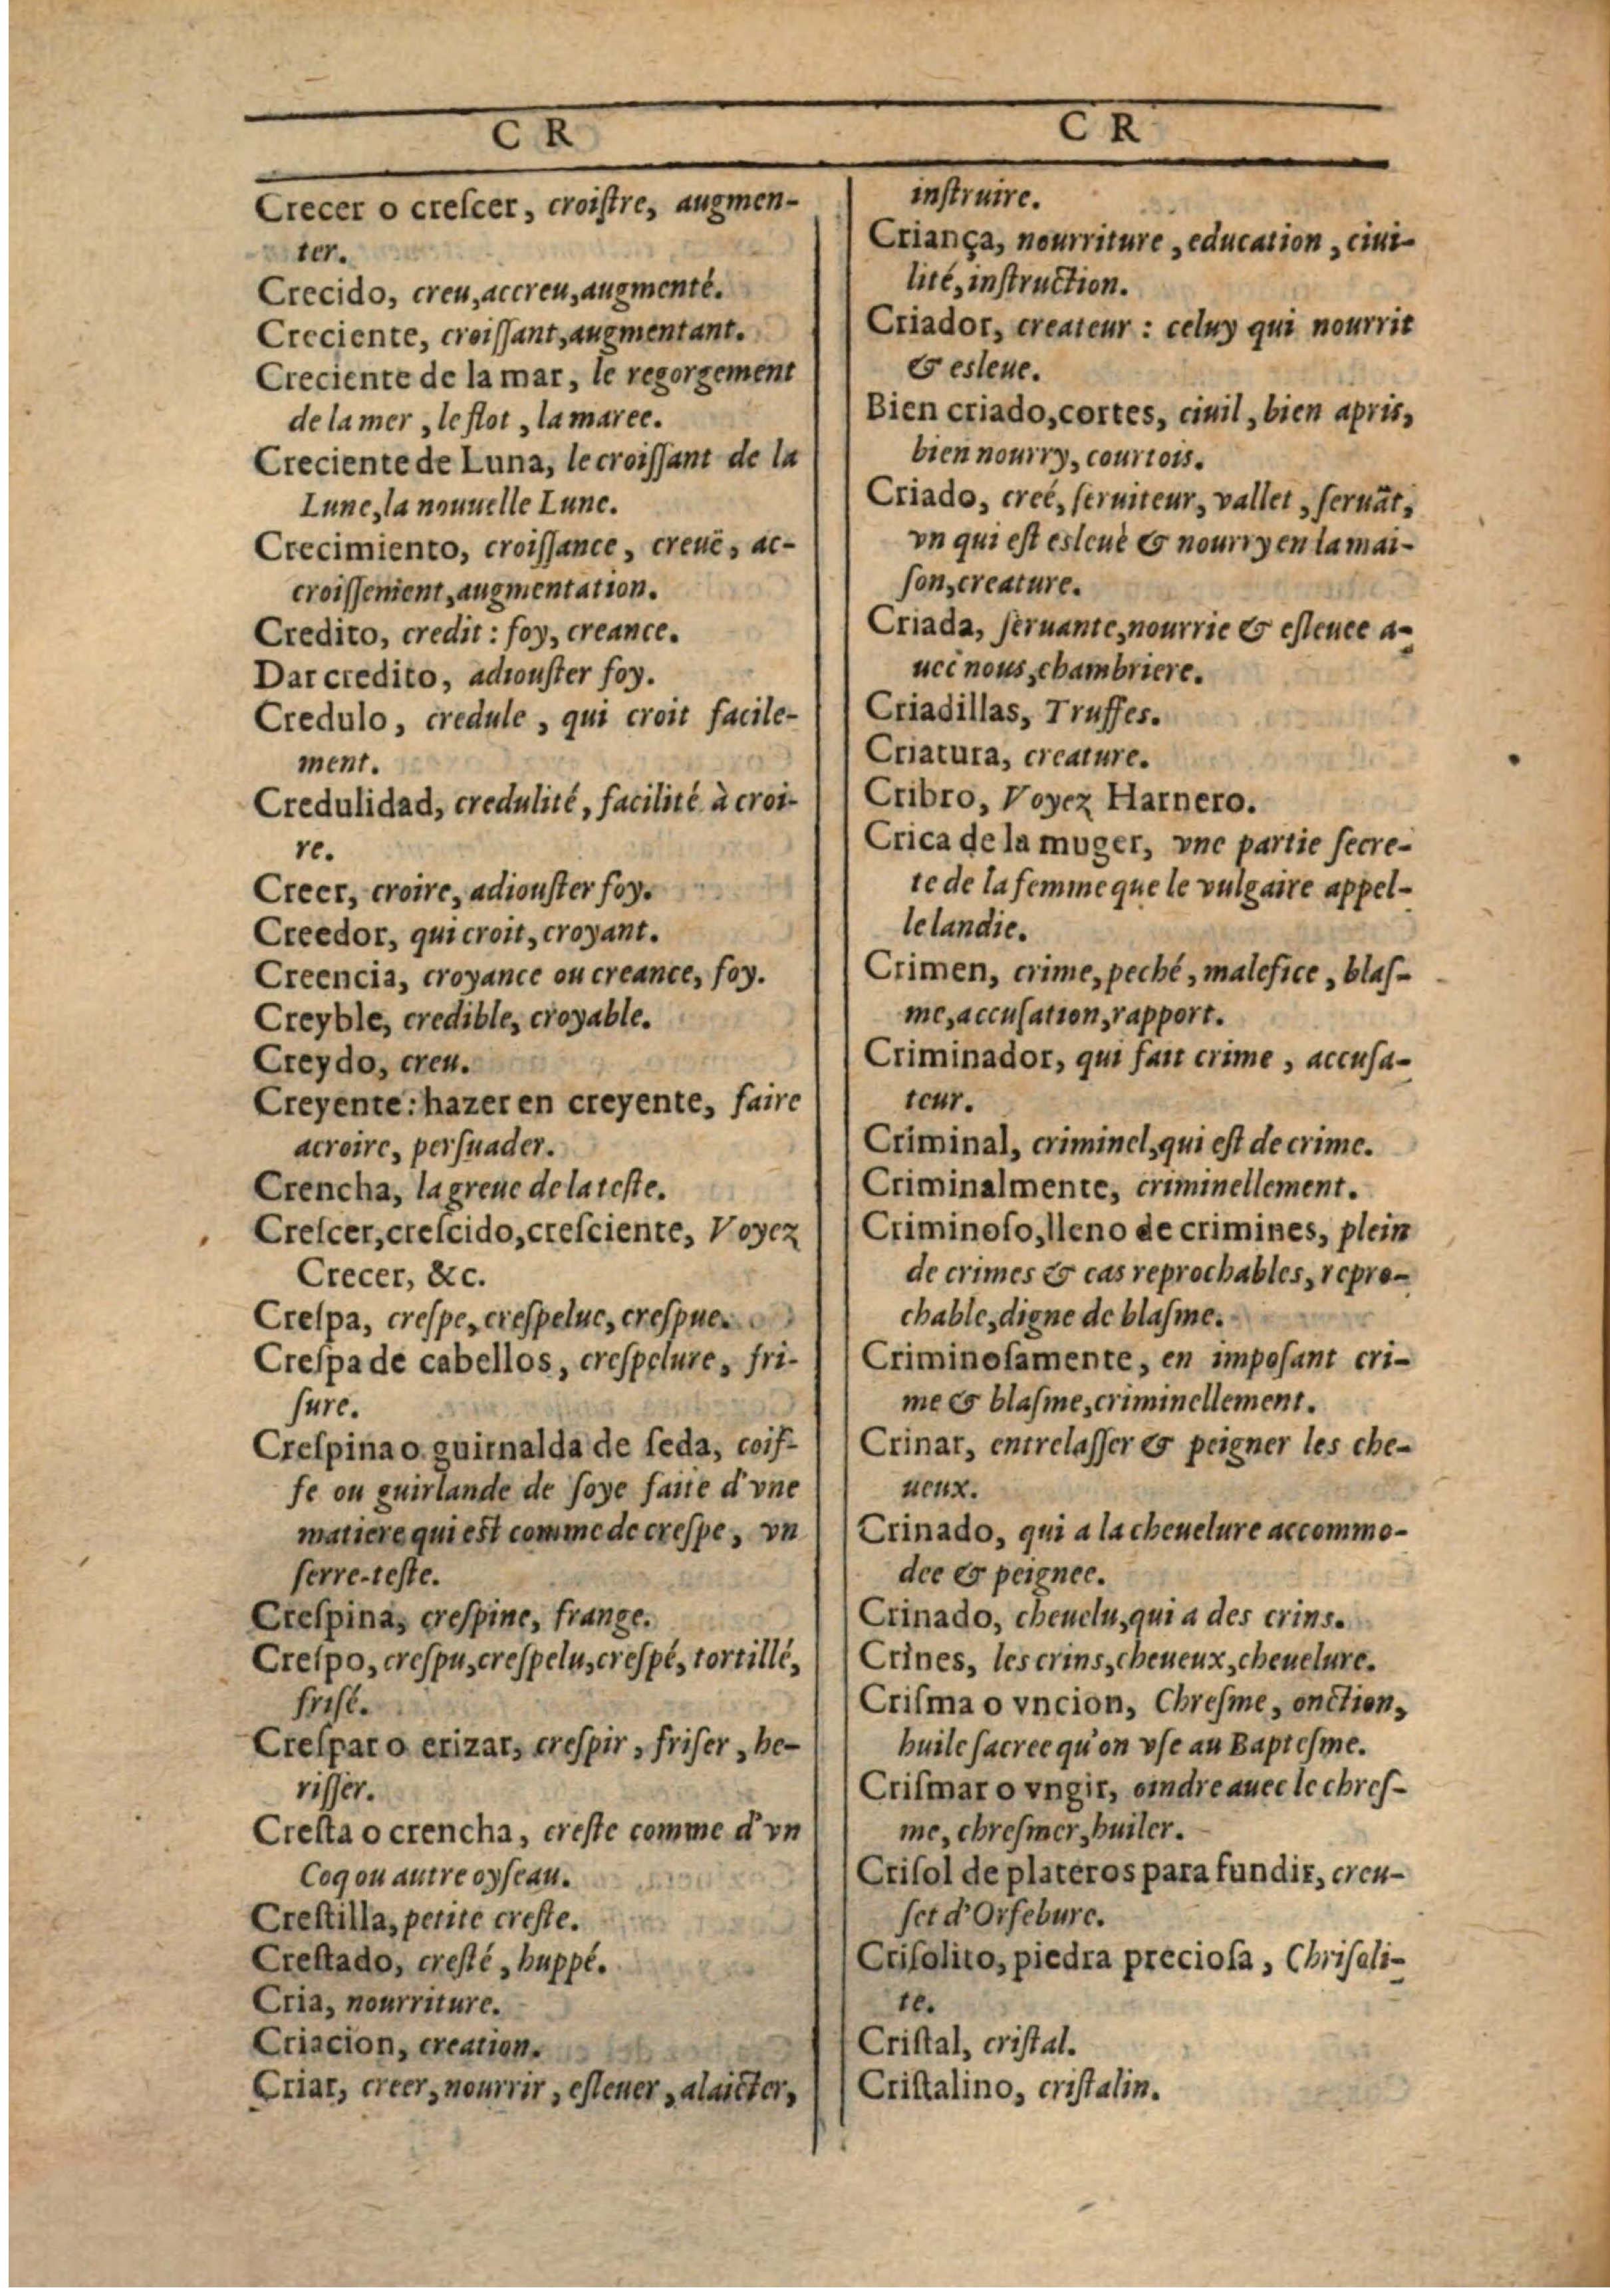 C R
Crecer o creſcer, croiſtre, augmen-
ter.
Crecido, creu,accreu,augmenté.
Creciente, croiſſant,augmentant.
Creciente de la mar, le regorgement
de la mer, le flot, la maree.
Creciente de Luna, le croiſſant de la
Lune,la nouuelle Lune.
Crecimiento, croiſſance, creuë, ac-
croiſſement,augmentation.
Credito, credit: foy, creance.
Dar credito, adiouſter foy.
Credulo, credule, qui croit facile-
ment.
Credulidad, credulité, facilité à croi-
re.
Creer, croire, adiouſter foy.
Creedor, qui croit, croyant.
Creencia, croyance ou creance, foy.
Creyble, credible, croyable.
Creydo, creu.
Creyente: hazer en creyente, faire
acroire, perſuader.
Crencha, la greue de la teſte.
Creſcer,creſcido,creſciente, Voyez
Crecer, &c.
Creſpa, creſpe, creſpelue, creſpue.
Creſpa de cabellos, creſpelure, fri-
ſure.
Creſpina o guirnalda de ſeda, coif-
fe ou guirlande de ſoye faite d'vne
matiere qui est comme de creſpe, vn
ſerre-teſte.
Creſpina, creſpine, frange.
Creſpo, creſpu,creſpelu,creſpé, tortillé,
friſé.
Creſpar o erizar, creſpir, friſer, he-
riſſer.
Creſta o crencha, creſte comme d'vn
Coq ou autre oyſeau.
Creſtilla, petite creſte.
Creſtado, creſté, huppé.
Cria, nourriture.
Criacion, creation.
Criar, creer, nourrir, eſleuer, alaicter,
C R
inſtruire.
Criança, nourriture, education, ciui-
lité, inſtruction.
Criador, createur: celuy qui nourrit
& esleue.
Bien criado,cortes, ciuil, bien apris,
bien nourry, courtois.
Criado, creé, ſeruiteur, vallet, ſeruãt,
vn qui eſt esleué & nourry en la mai-
ſon,creature.
Criada, ſeruante,nourrie & eſleuee a-
uec nous,chambriere.
Criadillas, Truffes.
Criatura, creature.
Cribro, Voyez Harnero.
Crica de la muger, vne partie ſecre-
te de la femme que le vulgaire appel-
le landie.
Crimen, crime, peché, malefice, blaſ-
me,accuſation,rapport.
Criminador, qui fait crime, accuſa-
teur.
Criminal, criminel,qui eſt de crime.
Criminalmente, criminellement.
Criminoſo,lleno de crimines, plein
de crimes & cas reprochables, repro-
chable,digne de blaſme.
Criminoſamente, en impoſant cri-
me & blaſme,criminellement.
Crinar, entrelaſſer & peigner les che-
ueux.
Crinado, qui a la cheuelure accommo-
dee & peignee.
Crinado, cheuelu,qui a des crins.
Crines, les crins,cheueux,cheuelure.
Criſma o vncion, Chreſme, onction,
huile ſacree qu'on vſe au Bapteſme.
Criſmar o vngir, oindre auec le chreſ-
me, chreſmer,huiler.
Criſol de plateros para fundir, creu-
ſet d'Orfebure.
Criſolito, piedra precioſa, Chriſoli-
te.
Criſtal, criſtal.
Criſtalino, criſtalin.